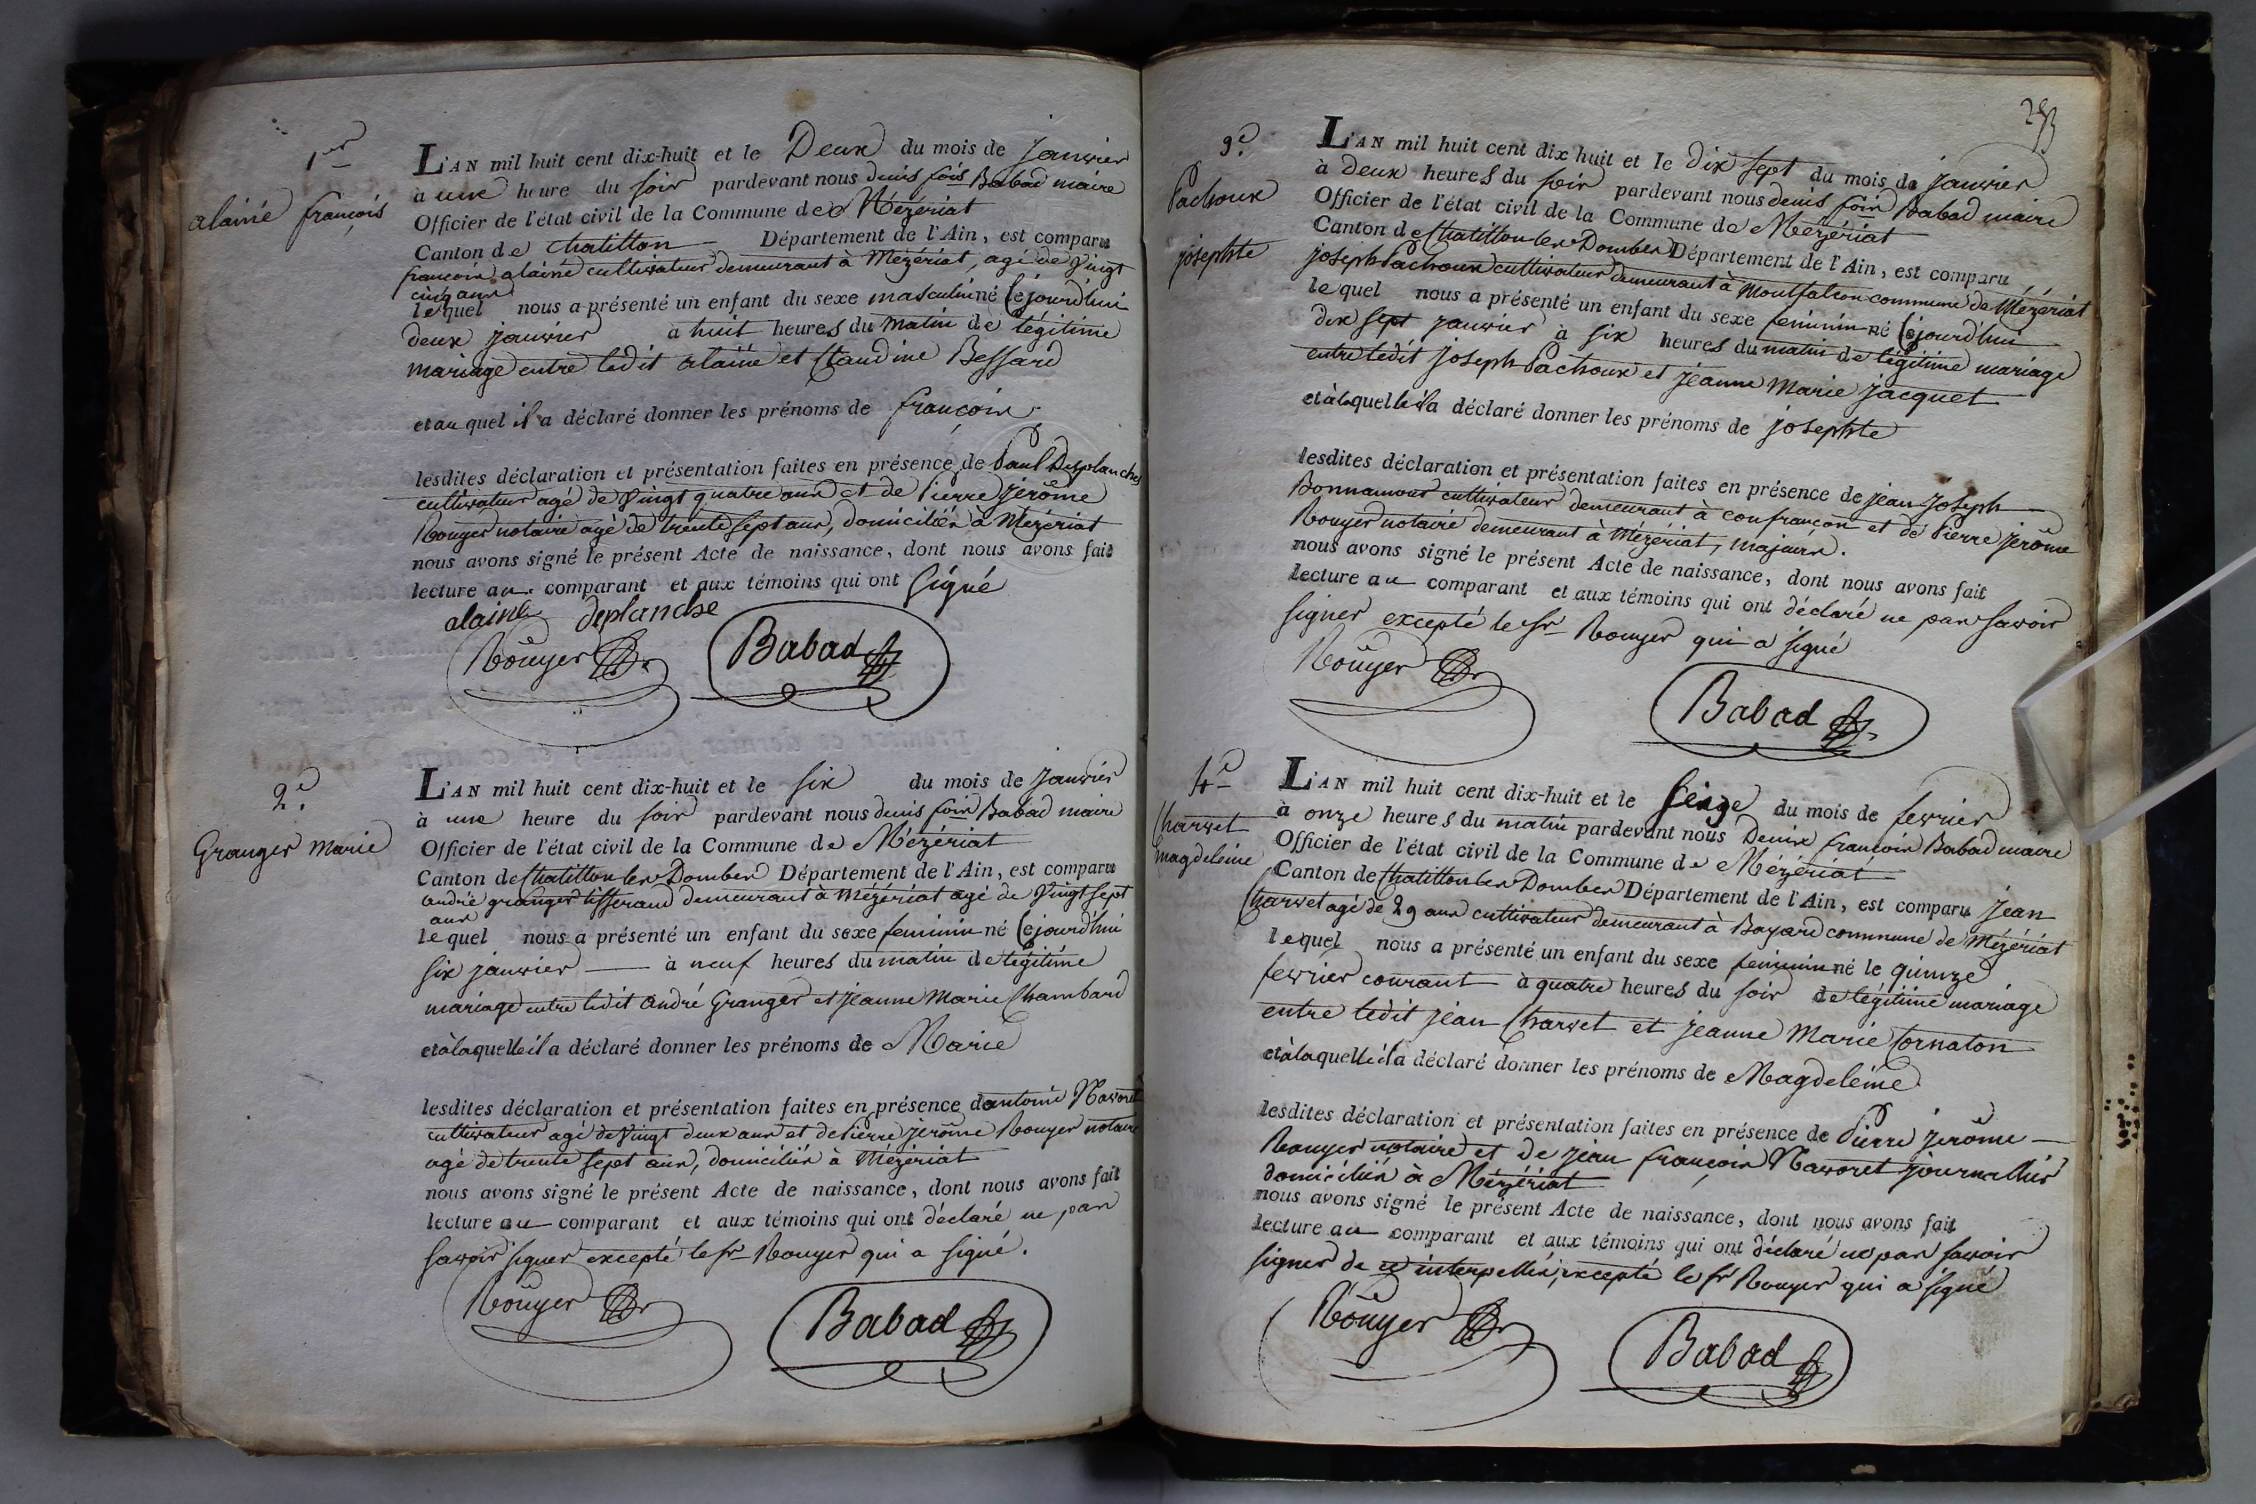 1er
alainé françois
L'AN mil huit cent dix-huit et le Deux du mois de janvier
à une heure du soir pardevant nous denis fois Babad maire
Officier de l'état civil de la Commune de Mézériat
Canton de chatillon Département de l'Ain, est comparu
françois alainé cultivateur demeurant à Mézériat, agé de vingt
cinq ans
lequel nous a présenté un enfant du sexe masculin né cejourd'hui
deux janvier à huit heures du matin de légitime
mariage entre ledit alainé et Claudine Bessard
et au quel il a déclaré donner les prénoms de françois.
lesdites déclaration et présentation faites en présence de Paul Desplanches
cultivateur agé de vingt quatre ans et de Pierre jérôme
Rouyer notaire agé de trente sept ans, domiciliés à Mézériat
nous avons signé le présent Acte de naissance, dont nous avons fait
lecture au comparant et aux témoins qui ont signé
alaine deplanche
Rouyer Babad
2e.
Granger Marie
L'AN mil huit cent dix-huit et le six du mois de janvier
à une heure du soir pardevant nous denis fois Babad maire
Officier de l'état civil de la Commune de Mézériat
Canton de Chatillon les Dombes Département de l'Ain, est comparu
andré granger tisserand demeurant à Mézériat agé de vingt sept
ans
lequel nous a présenté un enfant du sexe feminin né cejourd'hui
six janvier à neuf heures du matin de légitime
mariage entre ledit andré Granger et jeanne Marie Chambard
et à laquelle il a déclaré donner les prénoms de Marie
lesdites déclaration et présentation faites en présence d'antoine Navoret
cultivateur agé de vingt deux ans et de Pierre jerôme Rouyer notaire
agé de trente sept ans, domiciliés à Mézériat
nous avons signé le présent Acte de naissance, dont nous avons fait
lecture au comparant et aux témoins qui ont déclaré ne pas
savoir signer excepté le sr Rouyer qui a signé.
Rouyer Babad
3e.
Pachoux
josephte
L'AN mil huit cent dix huit et le dix sept du mois de janvier
à deux heures du soir pardevant nous denis fois Babad maire
Officier de l'état civil de la Commune de Mézériat
Canton de Chatillon les Dombes Département de l'Ain, est comparu
joseph Pachoux cultivateur demeurant à Montfalcon commune de Mézériat
lequel nous a présenté un enfant du sexe feminin né cejourd'hui
dix sept janvier à six heures du matin de légitime mariage
entre ledit joseph Pachoux et jeanne Marie jacquet
et à laquelle il a déclaré donner les prénoms de josephte
lesdites déclaration et présentation faites en présence de jean joseph
Bonnamour cultivateur demeurant à confrançon et de Pierre jerôme
Rouyer notaire demeurant à Mézériat, majeurs.
nous avons signé le présent Acte de naissance, dont nous avons fait
lecture au comparant et aux témoins qui ont déclaré ne pas savoir
signer excepté le sr Rouyer qui a signé
Rouyer Babad
4e
Charvet
magdeleine
L'AN mil huit cent dix-huit et le seize du mois de fevrier
à onze heures du matin pardevant nous Denis françois Babad maire
Officier de l'état civil de la Commune de Mézériat
Canton de Chatillon les Dombes Département de l'Ain, est comparu jean
Charvet agé de 29 ans cultivateur demeurant à Bayard commune de Mézériat
lequel nous a présenté un enfant du sexe feminin né le quinze
fevrier courant à quatre heures du soir de légitime mariage
entre ledit jean Charvet et jeanne Marie Cornaton
et à laquelle il a déclaré donner les prénoms de Magdeleine
lesdites déclaration et présentation faites en présence de Pierre jerôme
Rouyer notaire et de jean françois Navoret journallier
domiciliés à Mézériat
nous avons signé le présent Acte de naissance, dont nous avons fait
lecture au comparant et aux témoins qui ont déclaré ne pas savoir
signer de ce interpellés, excepté le sr Rouyer qui a signé
Rouyer Babad